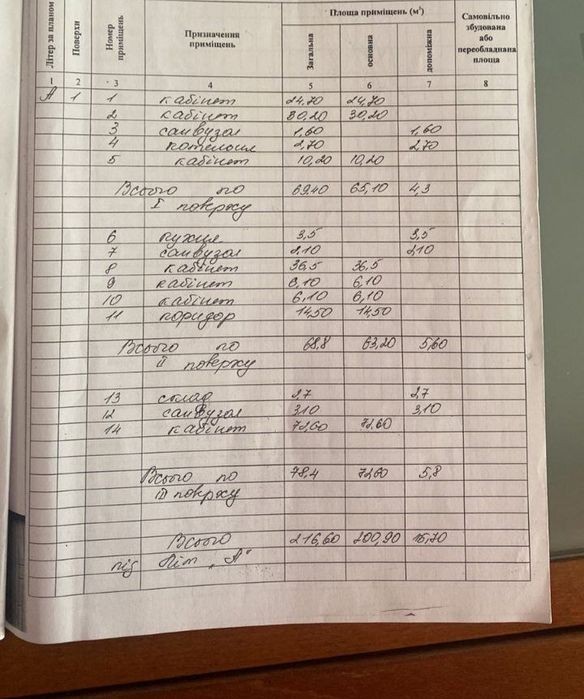 Літер за планом Поверхи Номер приміщень Призначення приміщень Площа приміщень (м²) Самовільно збудована або переобладнана площа
Загальна основна допоміжна
1 2 3 4 5 6 7 8
А 1 1 кабінет 24,70 24,70
2 кабінет 30,20 30,20
3 санвузол 1,60 1,60
4 котельня 2,70 2,70
5 кабінет 10,20 10,20
Всього по 69,40 65,10 4,3
I поверху
6 кухня 3,5 3,5
7 санвузол 2,10 2,10
8 кабінет 36,5 36,5
9 кабінет 6,10 6,10
10 кабінет 6,10 6,10
11 коридор 14,50 14,50
Всього по 68,8 63,20 5,60
II поверху
13 склад 2,7 2,7
12 санвузол 3,10 3,10
14 кабінет 72,60 72,60
Всього по 78,4 72,60 5,8
III поверху
Всього 216,60 200,90 15,70
під Літ „А"